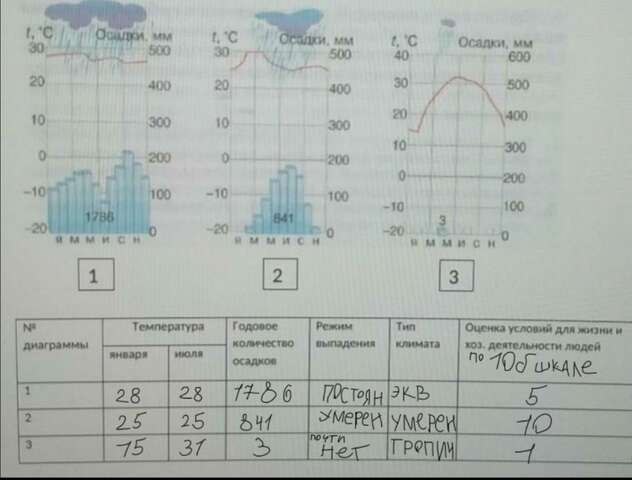 t, °C Осадки, мм
30 500
20 400
10 300
0 200
-10 100
-20 0
1786
я м м и с н
1
t, °C Осадки, мм
30 500
20 400
10 300
0 200
-10 100
-20 0
841
я м м и с н
2
t, °C Осадки, мм
40 600
30 500
20 400
10 300
0 200
-10 100
-20 0
3
я м м и с н
3
№ диаграммы
Температура
января
июля
Годовое
количество
осадков
Режим
выпадения
Тип
климата
Оценка условий для жизни и
хоз. деятельности людей
по 10б шкале
1 28 28 1786 ПОСТОЯН ЭКВ 5
2 25 25 841 УМЕРЕН УМЕРЕН 10
3 15 31 3 почти нет ТРОПИЧ 1